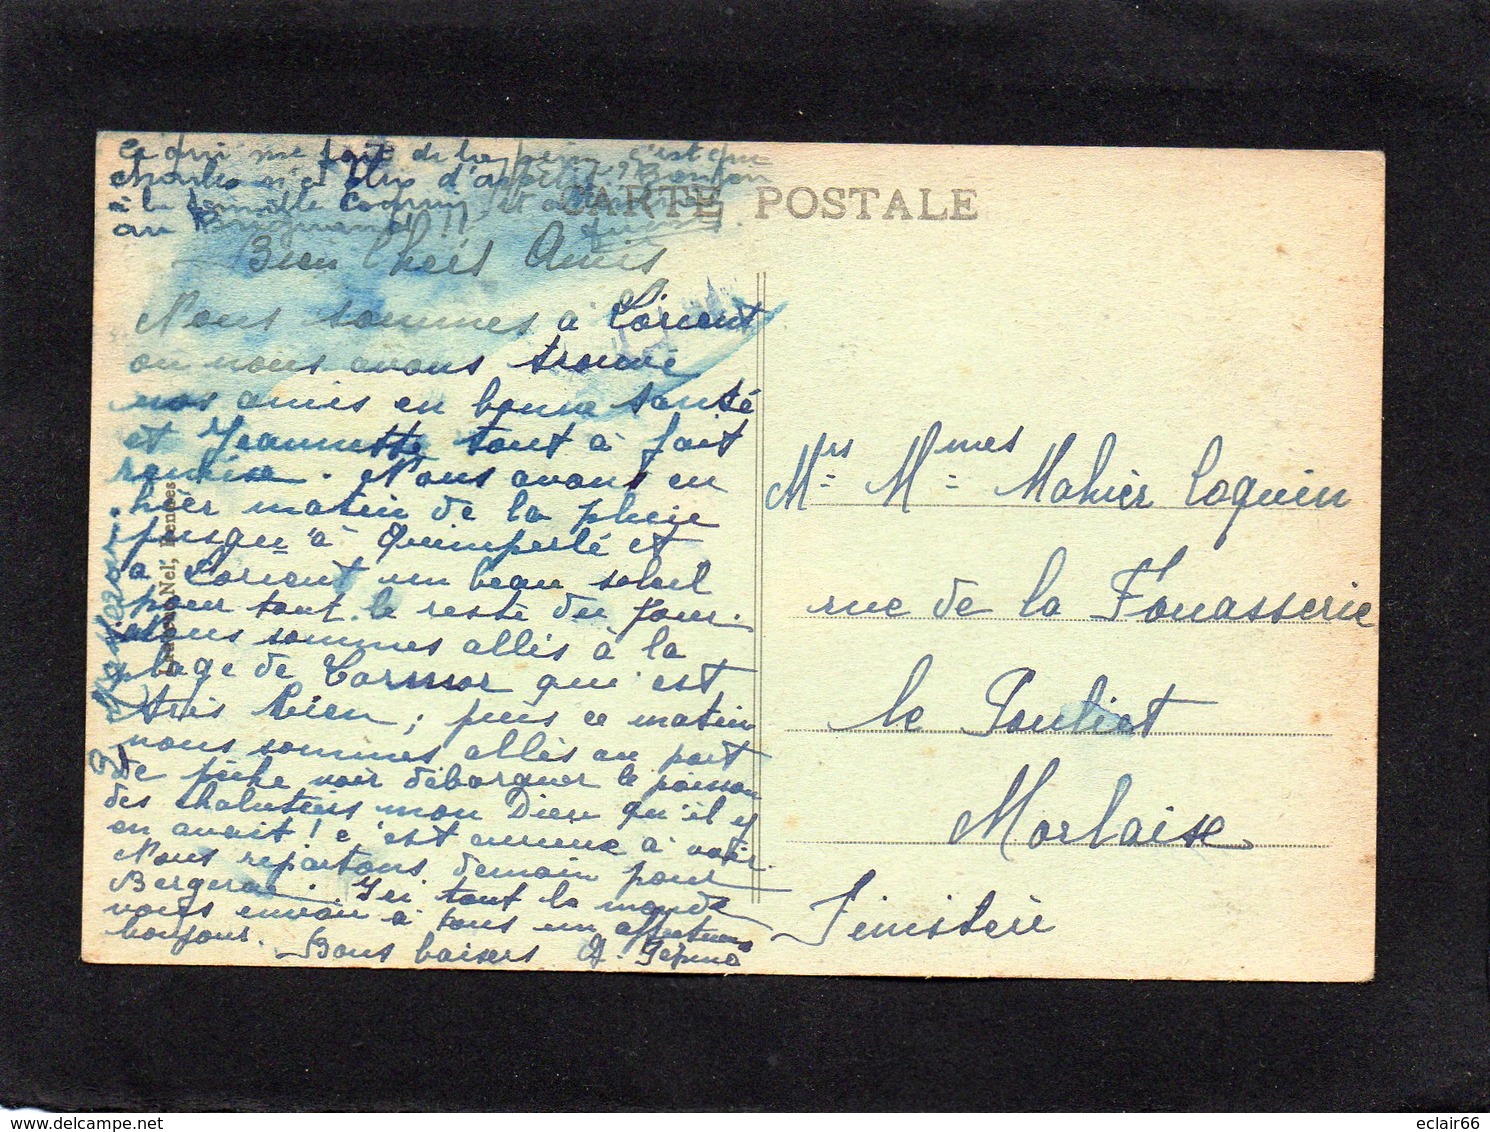 Ce qui me fait de la peine c'est que
Charles n'a plus d'appétit! Bonjour
à la famille et
au !!
CARTE POSTALE
Bien Chers Amis
Nous sommes à Lorient
ou nous avons trouvé
nos amis en bonne santé
et Jeannette tout à fait
remise. Nous avons eu
hier matin de la pluie
jusqu'à Quimperlé et
à Lorient un beau soleil
pour tout le reste du jour.
Nous sommes allés à la
plage de Larmor qui est
très bien; puis ce matin
nous sommes allés au port
de pêche voir débarquer le poisson
des chalutiers mon Dieu qu'il y
en avait! c'est curieux à voir.
Nous repartons demain pour
Bergerac. Ici tout le monde
vous envoie à tous un affectueux
bonjour. Bons baisers
Nel, Rennes
Mrs Mmes Mahier Coquin
rue de la Fouasserie
le Pouliet
Morlaix
Finistère
eclair66
delcampe.net